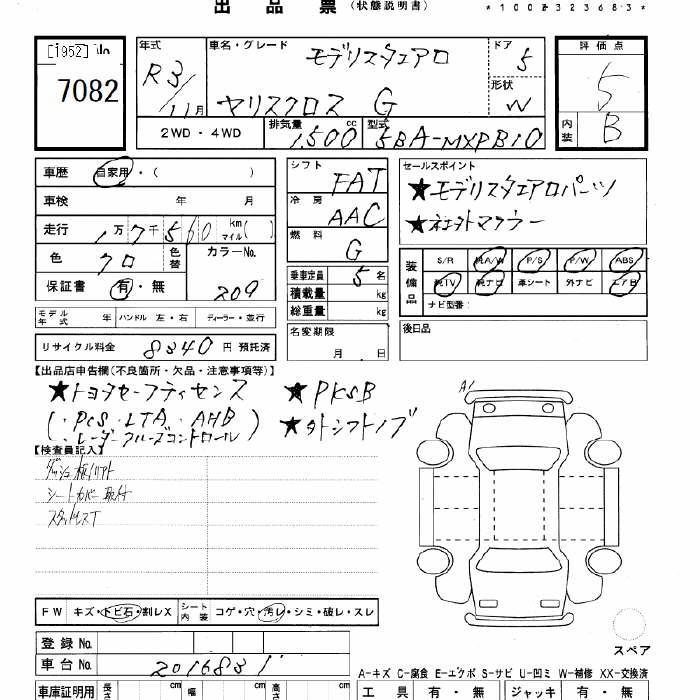 出品票 (状態説明書) *1007323683*
[1952] No
7082
年式 R3/11月
車名・グレード モデリスタエアロ
ヤリスクロス G
ドア 5
形状 W
評価点 5
内装 B
2WD・4WD
排気量 1500 cc
型式 5BA-MXPB10
車歴 自家用・( )
車検 年 月
走行 1万7千560 km マイル( )
色 クロ 色替
カラーNo. 209
保証書 有・無
シフト FAT
冷房 AAC
燃料 G
乗車定員 5名
積載量 kg
総重量 kg
セールスポイント
★モデリスタエアロパーツ
マフラー
装備品 S/R 純A/W P/S P/W ABS
純TV 純ナビ 革シート 外ナビ エアB
ナビ型番:
モデル年式 年 ハンドル 左・右 ディーラー・並行
名変期限 月 日
後日品
リサイクル料金 8340円 預託済
【出品店申告欄(不良箇所・欠品・注意事項等)】
★トヨタセーフティセンス ★PKSB
(・PCS・LTA・AHB)
・レーダークルーズコントロール ★外シフトノブ
【検査員記入】
シートカバー取付
スタッドレスT
A1
FW キズ・トビ石・割レX シート内装 コゲ・穴・汚レ・シミ・破レ・スレ
スペア
登録No.
車台No. 2016831
A-キズ C-腐食 E-エクボ S-サビ U-凹ミ W-補修 XX-交換済
車庫証明用 長さ cm 幅 cm 高さ cm
工具 有・無 ジャッキ 有・無